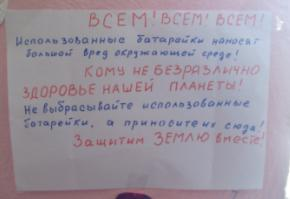 ВСЕМ! ВСЕМ! ВСЕМ!
Использованные батарейки наносят
большой вред окружающей среде!
КОМУ НЕ БЕЗРАЗЛИЧНО
ЗДОРОВЬЕ НАШЕЙ ПЛАНЕТЫ!
Не выбрасывайте использованные
батарейки, а приносите их сюда!
Защитим ЗЕМЛЮ вместе!